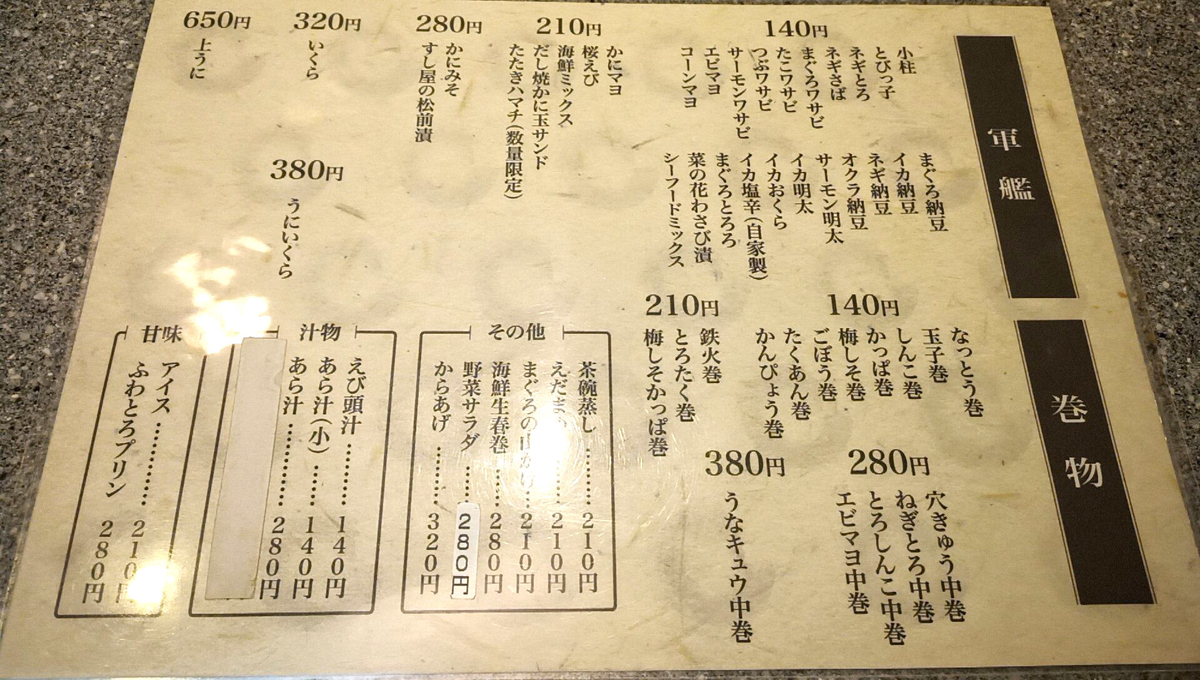 軍艦
140円
小柱
とびっ子
ネギとろ
ネギさば
まぐろワサビ
たこワサビ
つぶワサビ
サーモンワサビ
エビマヨ
コーンマヨ
まぐろ納豆
イカ納豆
ネギ納豆
オクラ納豆
サーモン明太
イカ明太
イカおくら
イカ塩辛(自家製)
まぐろとろろ
菜の花わさび漬
シーフードミックス
210円
かにマヨ
桜えび
海鮮ミックス
だし焼かに玉サンド
たたきハマチ(数量限定)
280円
かにみそ
すし屋の松前漬
320円
いくら
380円
うにいくら
650円
上うに
巻物
140円
なっとう巻
玉子巻
しんこ巻
かっぱ巻
梅しそ巻
ごぼう巻
たくあん巻
かんぴょう巻
210円
鉄火巻
とろたく巻
梅しそかっぱ巻
280円
穴きゅう中巻
ねぎとろ中巻
とろしんこ中巻
エビマヨ中巻
380円
うなキュウ中巻
その他
茶碗蒸し………210円
えだまめ………210円
まぐろの山かけ…210円
海鮮生春巻……280円
野菜サラダ……280円
からあげ………320円
汁物
えび頭汁………140円
あら汁(小)……140円
あら汁…………280円
甘味
アイス…………210円
ふわとろプリン 280円